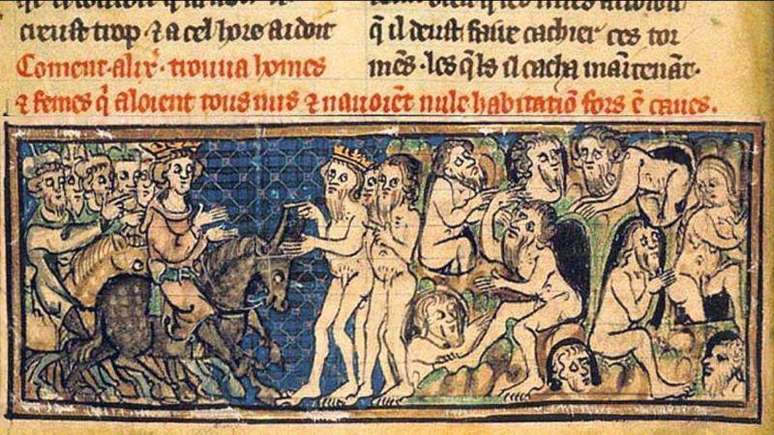 cieust trop ⁊ a cel hore aidoit
Coment·alix̄·trouua homes
⁊ femes q̄ aloient tous nus ⁊ nauoiēt nule habitatiō fors ē caues·
q̄ il deust faire cachier ces tor
mēs·les q̄ls il cacha maītenāt·